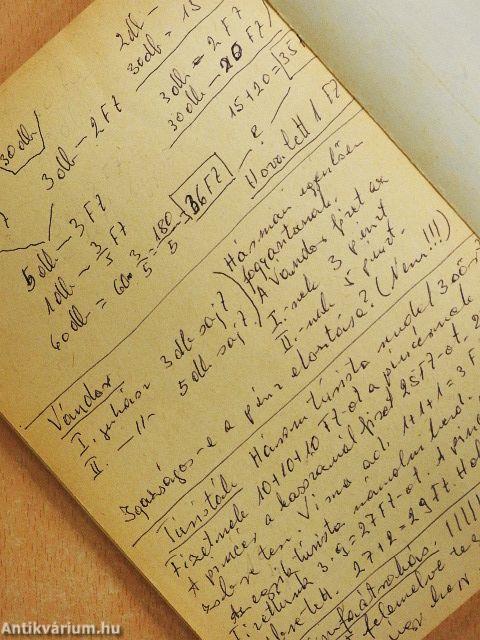 2db –
30db = 15
30db
3db – 2 Ft
3db – 2 Ft
30db – 20 Ft
15+20=35
5db – 3 Ft
1db – 3/5 Ft
60db = 60·3/5 = 180/5 = 36 Ft
Hová lett 1 Ft
Vándor
I. juhász 3db sajt
II. –"– 5db sajt
Hárman egyenlően
fogyasztanak.
A Vándor fizet az
I.-nek 3 pénzt
II.-nek 5 pénzt.
Igazságos-e a pénz elosztása? (Nem!!!)
Turisták Három turista rendel 3
Fizetnek 10+10+10 Ft-ot a pincérnek
A pincér a kasszánál fizet 25 Ft-ot. 2
zsebre tesz. Vissza ad. 1+1+1=3 F
Az egyik turista számolni kezd.
Fizettünk 3·9=27 Ft-ot. A pinc
zsebre tett. 27+2=29 Ft. Hol
!!!!!
Antikvárium.hu